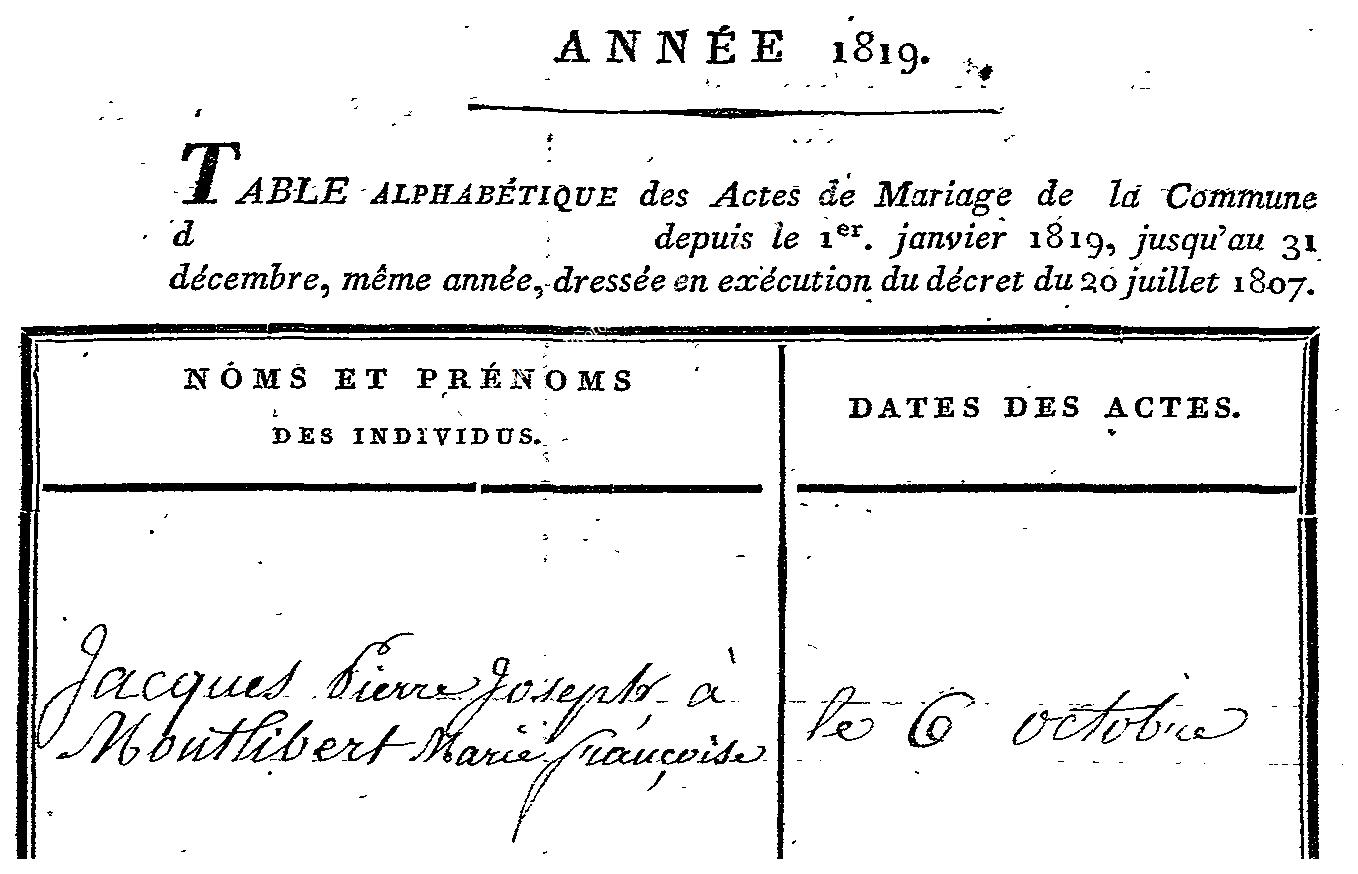 ANNÉE 1819.
TABLE ALPHABÉTIQUE des Actes de Mariage de la Commune
d depuis le 1er. janvier 1819, jusqu'au 31
décembre, même année, dressée en exécution du décret du 20 juillet 1807.
NOMS ET PRÉNOMS
DES INDIVIDUS.
DATES DES ACTES.
Jacques Pierre Joseph à
Montlibert Marie françoise
le 6 octobre